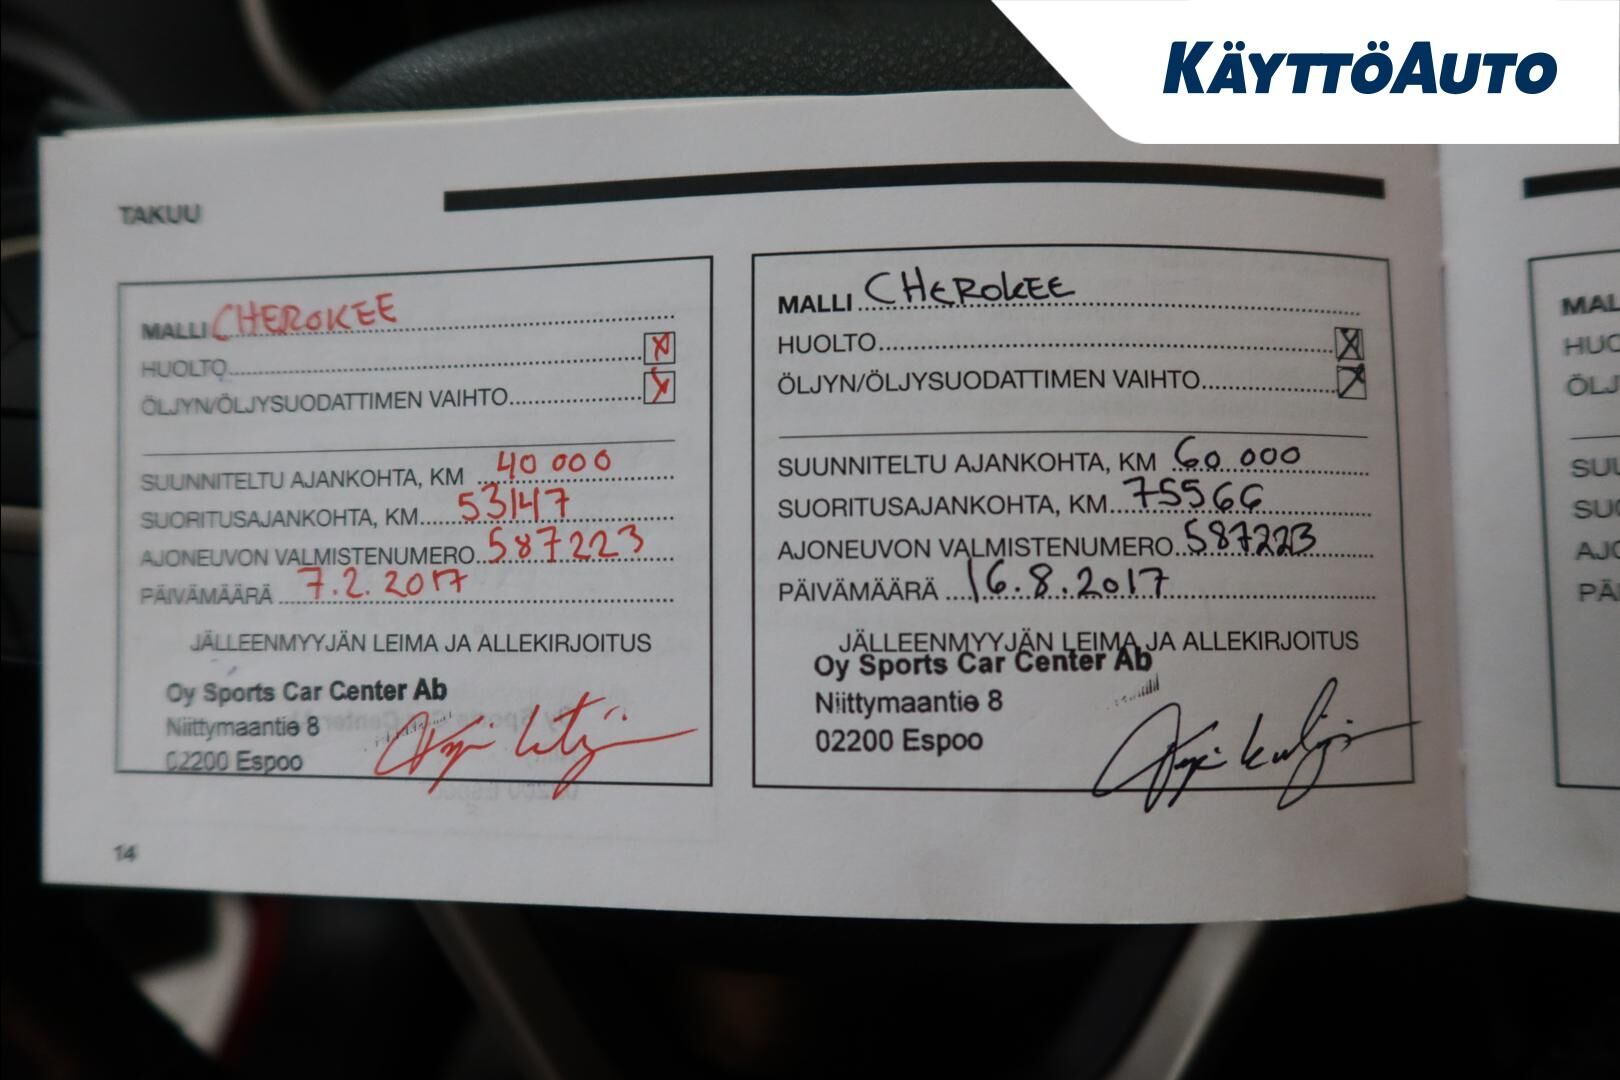 KÄYTTÖAUTO
TAKUU
MALLI CHEROKEE
HUOLTO
ÖLJYN/ÖLJYSUODATTIMEN VAIHTO
SUUNNITELTU AJANKOHTA, KM 40 000
SUORITUSAJANKOHTA, KM 53147
AJONEUVON VALMISTENUMERO 587223
PÄIVÄMÄÄRÄ 7.2.2017
JÄLLEENMYYJÄN LEIMA JA ALLEKIRJOITUS
Oy Sports Car Center Ab
Niittymaantie 8
02200 Espoo
14
MALLI CHEROKEE
HUOLTO
ÖLJYN/ÖLJYSUODATTIMEN VAIHTO
SUUNNITELTU AJANKOHTA, KM 60 000
SUORITUSAJANKOHTA, KM 75566
AJONEUVON VALMISTENUMERO 587223
PÄIVÄMÄÄRÄ 16.8.2017
JÄLLEENMYYJÄN LEIMA JA ALLEKIRJOITUS
Oy Sports Car Center Ab
Niittymaantie 8
02200 Espoo